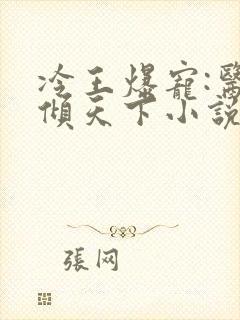 冷王爆寵:醫
傾天下小説
張网